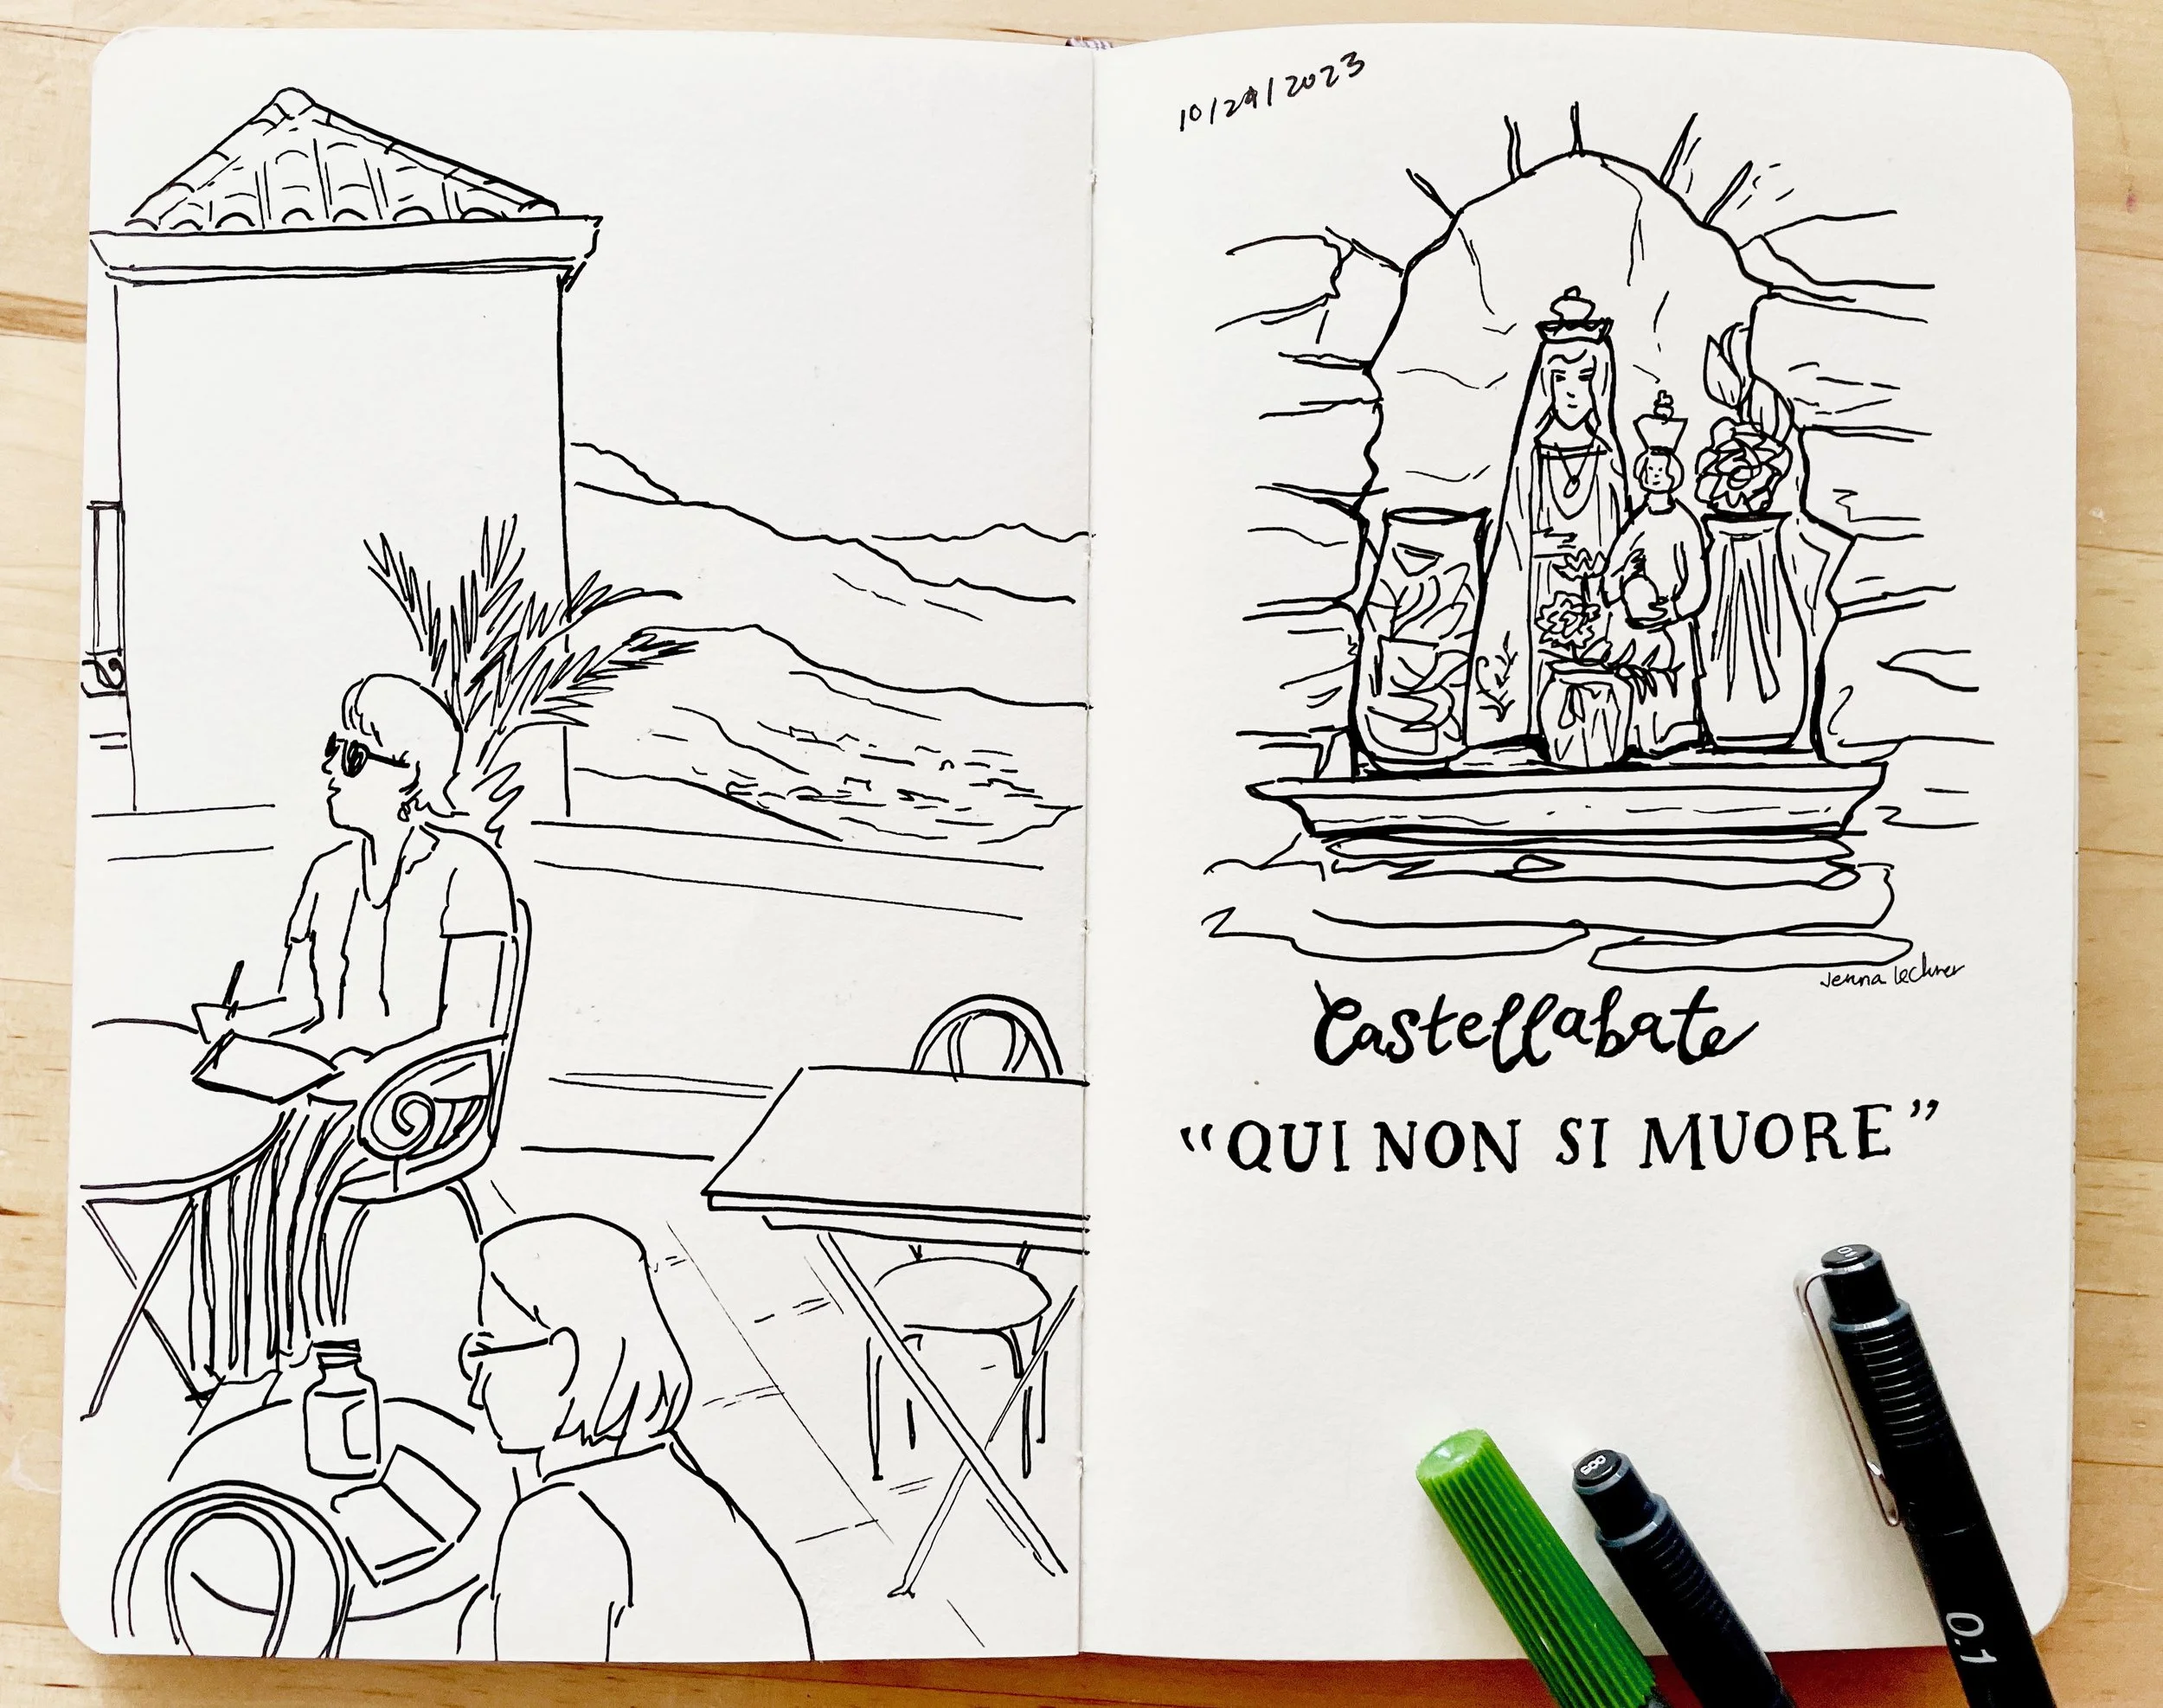 10/29/2023
Jenna Lechner
Castellabate
“QUI NON SI MUORE”
01
005
0.1